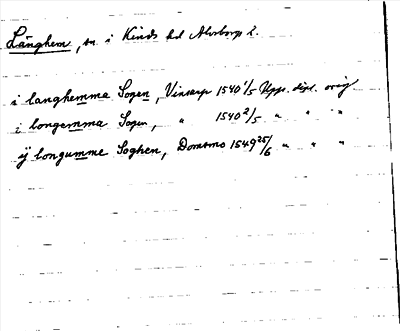 Länghem, sn. i Kinds hd Älvsborgs l.
i langhemma Sogen, Vinsarp 1540 1/5 Upps. dipl. orig.
i longemma Sogen, " 1540 2/5 " " "
ij longumme Soghen, 1549 25/6 " " "